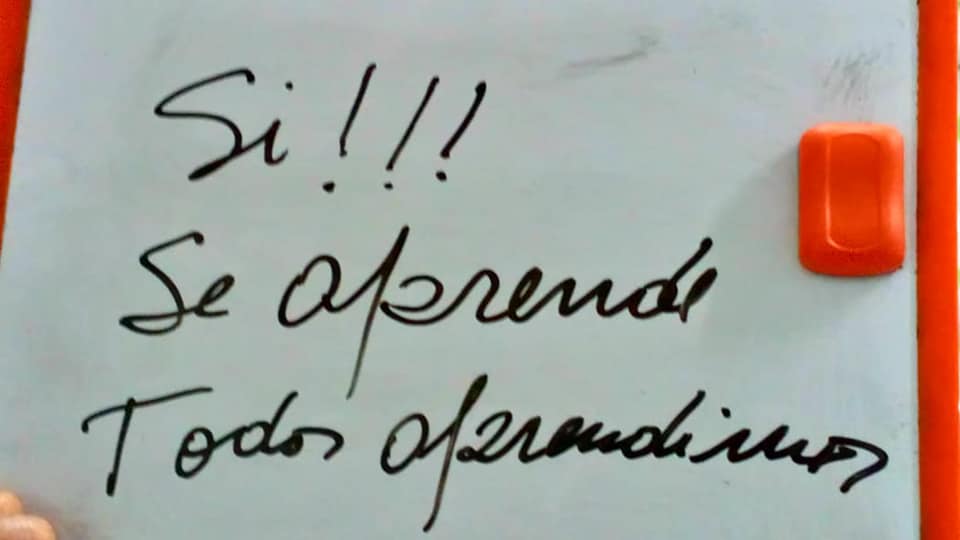 Si!!!
Se aprende
Todos aprendimos